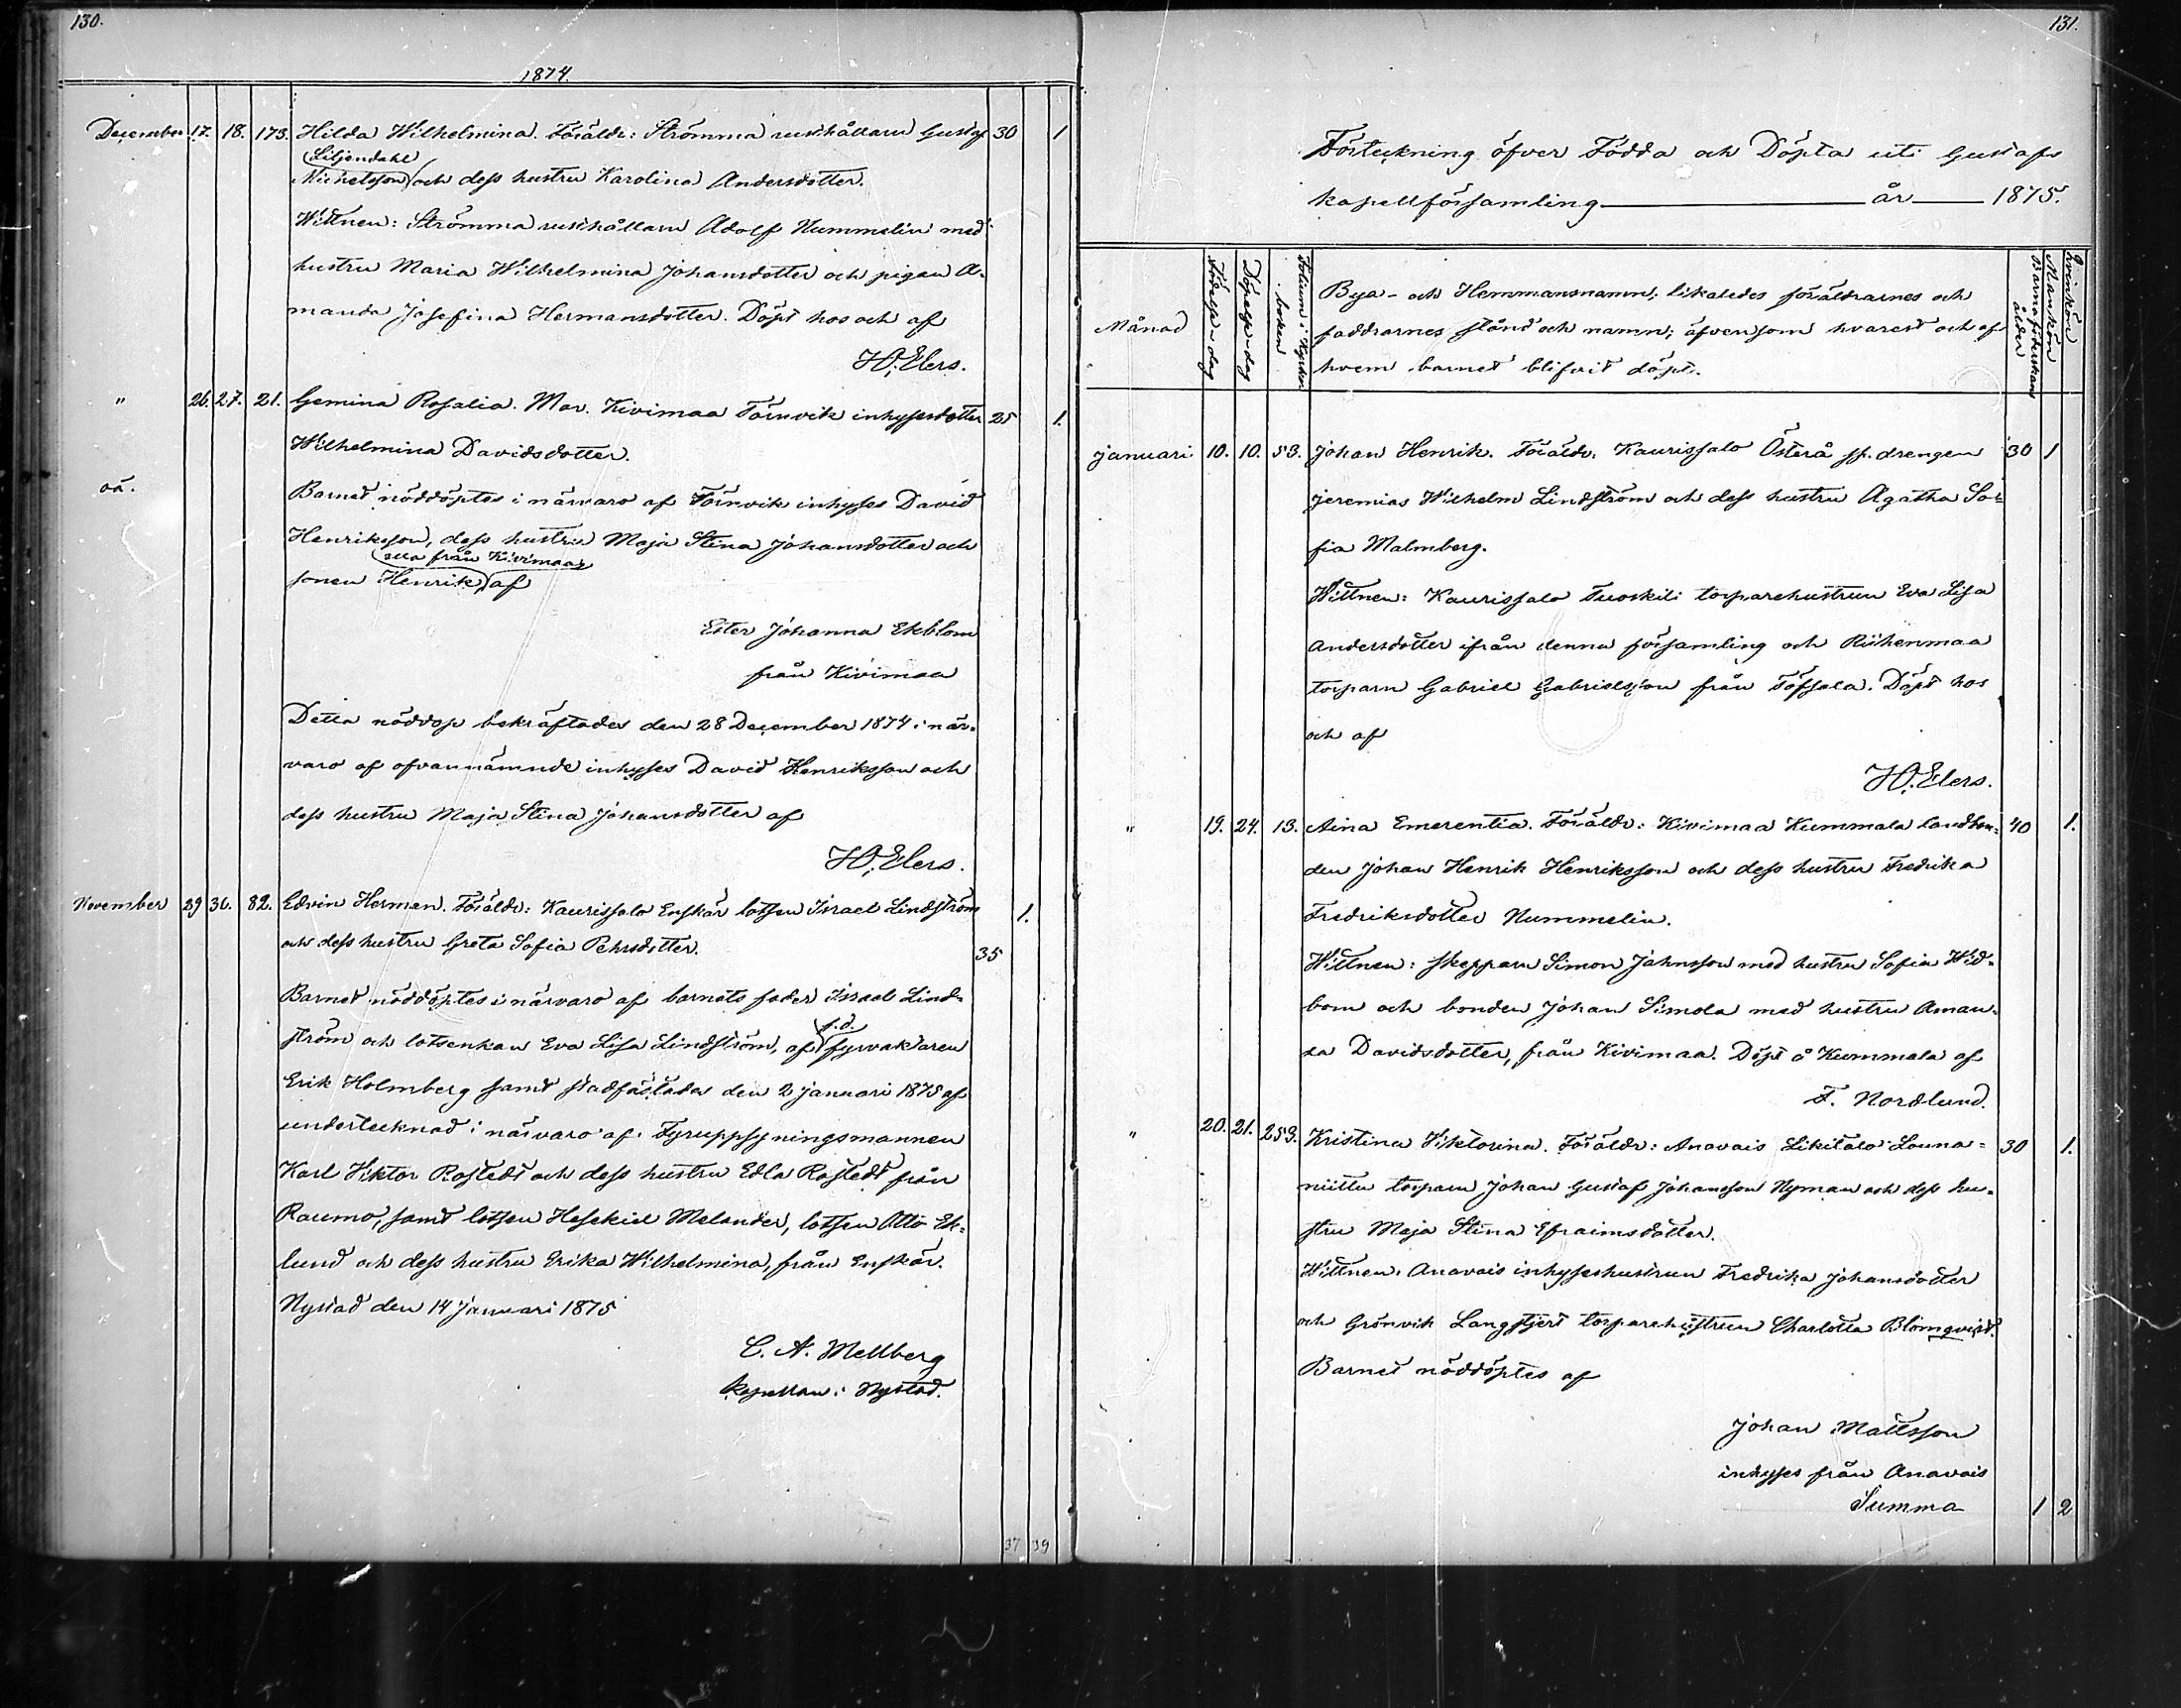 130.
1874.
December 17. 18. 173. Hilda Wilhelmina. Föräldr: Strömma rusthållaren Gustaf 30 1
Liljendahl
Michelsson och dess hustru Karolina Andersdotter.
Wittnen: Strömma rusthållaren Adolf Nummelin med
hustru Maria Wilhelmina Johansdotter och pigan A-
manda Josefina Hermansdotter. Döpt hos och af
H. Elers.
" 26. 27. 21. Gemina Rosalia. Mor. Kivimaa Törnvik inhysesdotter 25 1.
Wilhelmina Davidsdotter.
oä.
Barnet nöddöptes i närvaro af Törnvik inhyses David
Henriksson, dess hustru Maja Stina Johansdotter och
alla från Kivimaa,
sonen Henrik, af
Ester Johanna Ekblom
från Kivimaa
Detta nöddop bekräftades den 28 December 1874 i när-
varo af ofvannämnde inhyses David Henriksson och
dess hustru Maja Stina Johansdotter af
H. Elers.
November 29 30. 82. Edvin Herman. Föräldr: Kaurissalo Enskär lotsen Israel Lindström 1.
och dess hustru Greta Sofia Pehrsdotter. 35
Barnet nöddöptes i närvaro af barnets fader Israel Lind-
ström och lotsenkan Eva Lisa Lindström, af
f.d.
fyrvaktaren
Erik Holmberg samt stadfästades den 2 Januari 1875 af
undertecknad i närvaro af Fyruppsyningsmannen
Karl Viktor Rostedt och dess hustru Edla Rostedt från
Raumo, samt lotsen Hesekiel Melander, lotsen Otto Ek-
lund och dess hustru Erika Wilhelmina, från Enskär.
Nystad den 14 Januari 1875
C. A. Mellberg
kapellan i Nystad.
37 39
131.
Förteckning öfver Födda och Döpta uti Gustafs
kapellförsamling år 1875.
Månad
Födelse-dag
Döpelse-dag
Folium i Kyrko-
boken
Bya- och Hemmansnamn; likaledes föräldrarnes och
faddrarnes stånd och namn; äfvensom hvarest och af
hvem barnet blifvit döpt.
Barnaföderskans
ålder
Mankön
Qvinkön
Januari 10. 10. 53. Johan Henrik. Föräldr. Kaurissalo Österå sp. drengen 30 1
Jeremias Wilhelm Lindström och dess hustru Agatha So-
fia Malmberg.
Wittnen: Kaurissalo Tuoskili torparehustrun Eva Lisa
Andersdotter ifrån denna församling och Riihenmaa
torparen Gabriel Gabrielsson från Töfsala. Döpt hos
och af
H. Elers.
" 19. 24. 13. Aina Emerentia. Föräldr: Kivimaa Kummala landbon- 40 1.
den Johan Henrik Henriksson och dess hustru Fredrika
Fredriksdotter Nummelin.
Wittnen: skepparn Simon Jahnsson med hustru Sofia Wid-
bom och bonden Johan Simola med hustru Aman-
da Davidsdotter, från Kivimaa. Döpt å Kummala af
F. Nordlund.
" 20. 21. 253. Kristina Viktorina. Föräldr: Anavais Likitalo Louna- 30 1.
niittu torparn Johan Gustaf Johansson Nyman och dess hu-
stru Maja Stina Efraimsdotter.
Wittnen: Anavais inhyseshustrun Fredrika Johansdotter
och Grönvik Långstjert torparehustrun Charlotta Blomqvist.
Barnet nöddöptes af
Johan Mattsson
inhyses från Anavais
Summa 1 2